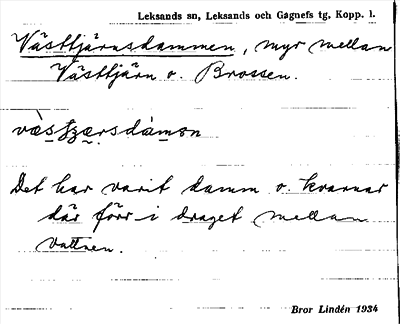 Leksands sn, Leksands och Gagnefs tg, Kopp. l.
Västtjärnsdammen, myr mellan
Västtjärn o. Brossen.
Det har varit damm o. kvarnar
där förr i draget mellan
vattnen.
Bror Lindén 1934